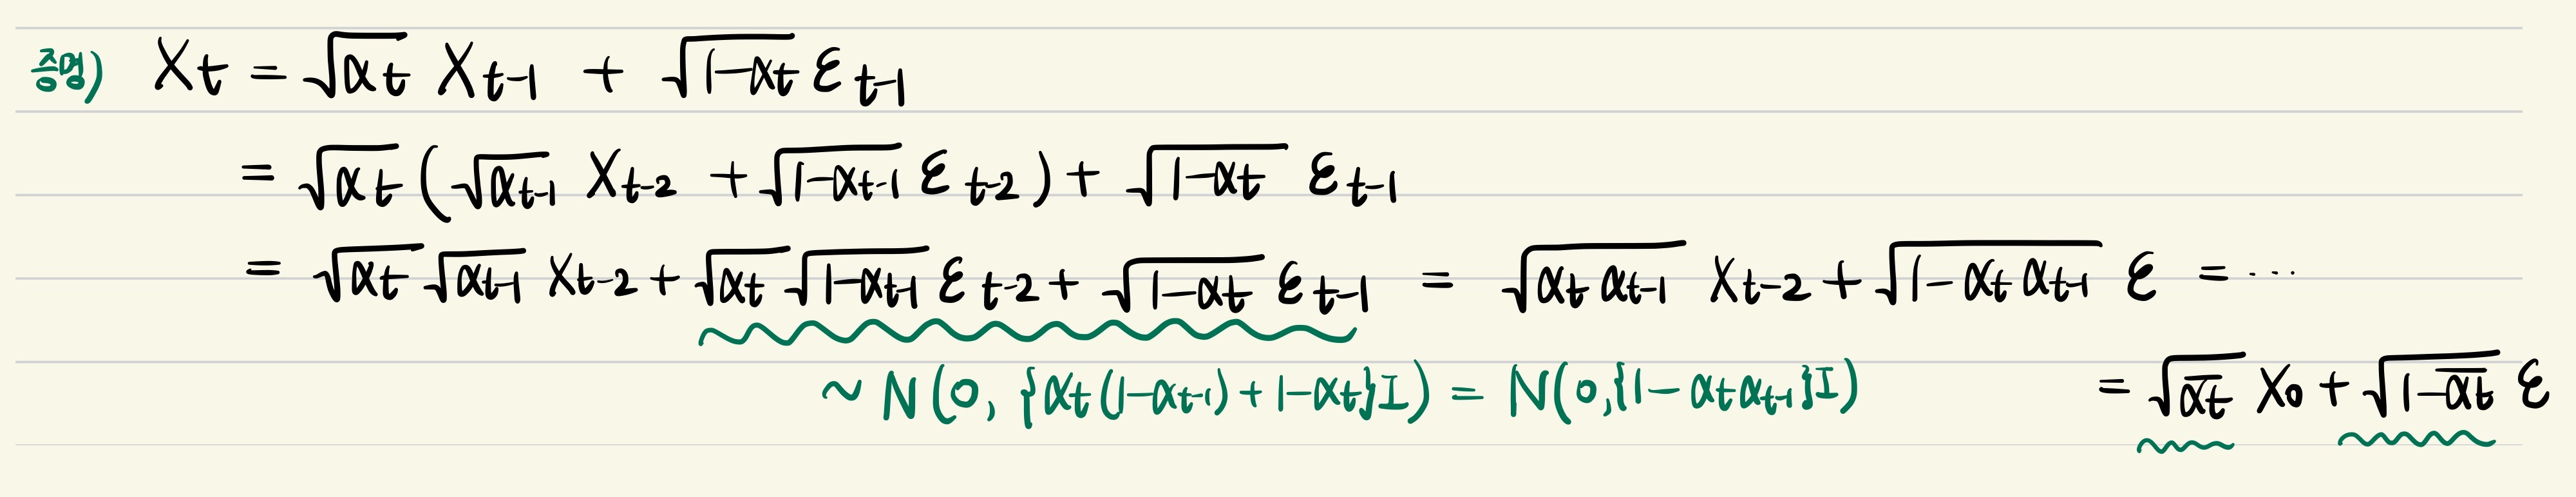 증명) X_t = √α_t X_{t-1} + √(1-α_t) ε_{t-1}
= √α_t (√α_{t-1} X_{t-2} + √(1-α_{t-1}) ε_{t-2}) + √(1-α_t) ε_{t-1}
= √α_t √α_{t-1} X_{t-2} + √α_t √(1-α_{t-1}) ε_{t-2} + √(1-α_t) ε_{t-1} = √(α_t α_{t-1}) X_{t-2} + √(1-α_t α_{t-1}) ε = ...
~ N(0, {α_t(1-α_{t-1}) + 1-α_t}I) = N(0, {1-α_t α_{t-1}}I)
= √ᾱ_t X_0 + √(1-ᾱ_t) ε